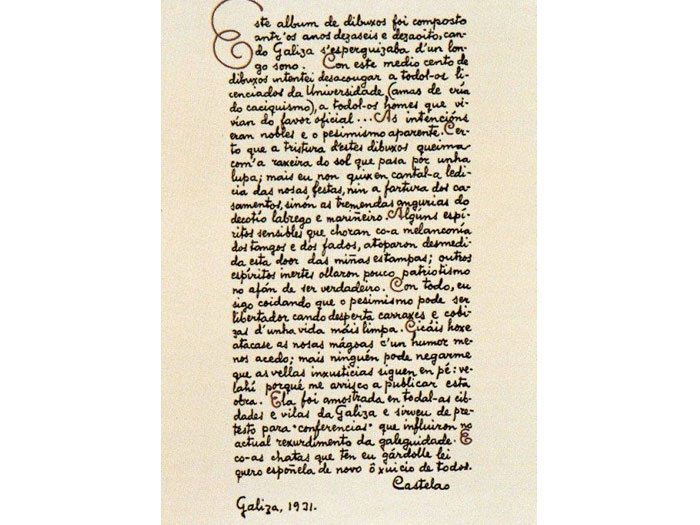 Este album de dibuxos foi composto
antr'os anos dezaseis e dezaoito, can-
do Galiza s'esperguizaba d'un lon-
go sono. Con este medio cento de
dibuxos intentei desacougar a todol-os li-
cenciados da Universidade, (amas de cría
do caciquismo), a todol-os homes que vi-
vían do favor oficial... As intencións
eran nobles e o pesimismo aparente. Cer-
to que a tristura d'estes dibuxos queima
com'a raxeira do sol que pasa por unha
lupa; mais eu non quixen cantal-a ledi-
cia das nosas festas, nin a fartura dos ca-
samentos, sinón as tremendas angurias do
decotío labrego e mariñeiro. Algúns espí-
ritos sensibles que choran co-a melanconía
dos tangos e dos fados, atoparon desmedi-
da esta door das miñas estampas; outros
espíritos inertes ollaron pouco patriotismo
no afán de ser verdadeiro. Con todo, eu
sigo coidando que o pesimismo pode ser
libertador cando desperta carraxes e cobi-
zas d'unha vida máis limpa. Cicáis hoxe
atacase as nosas mágoas c'un humor me-
nos acedo; mais ninguén pode negarme
que as vellas inxusticias siguen en pé: ve-
lahí porqué me arrisco a publicar esta
obra. Ela foi amostrada en todal-as cib-
dades e vilas da Galiza e sirveu de pre-
testo para "conferencias" que influiron no
actual rexurdimento da galeguidade. E
co-as chatas que ten eu gárdolle lei
quero espoñela de novo ô xuicio de todos.
Castelao
Galiza, 1931.